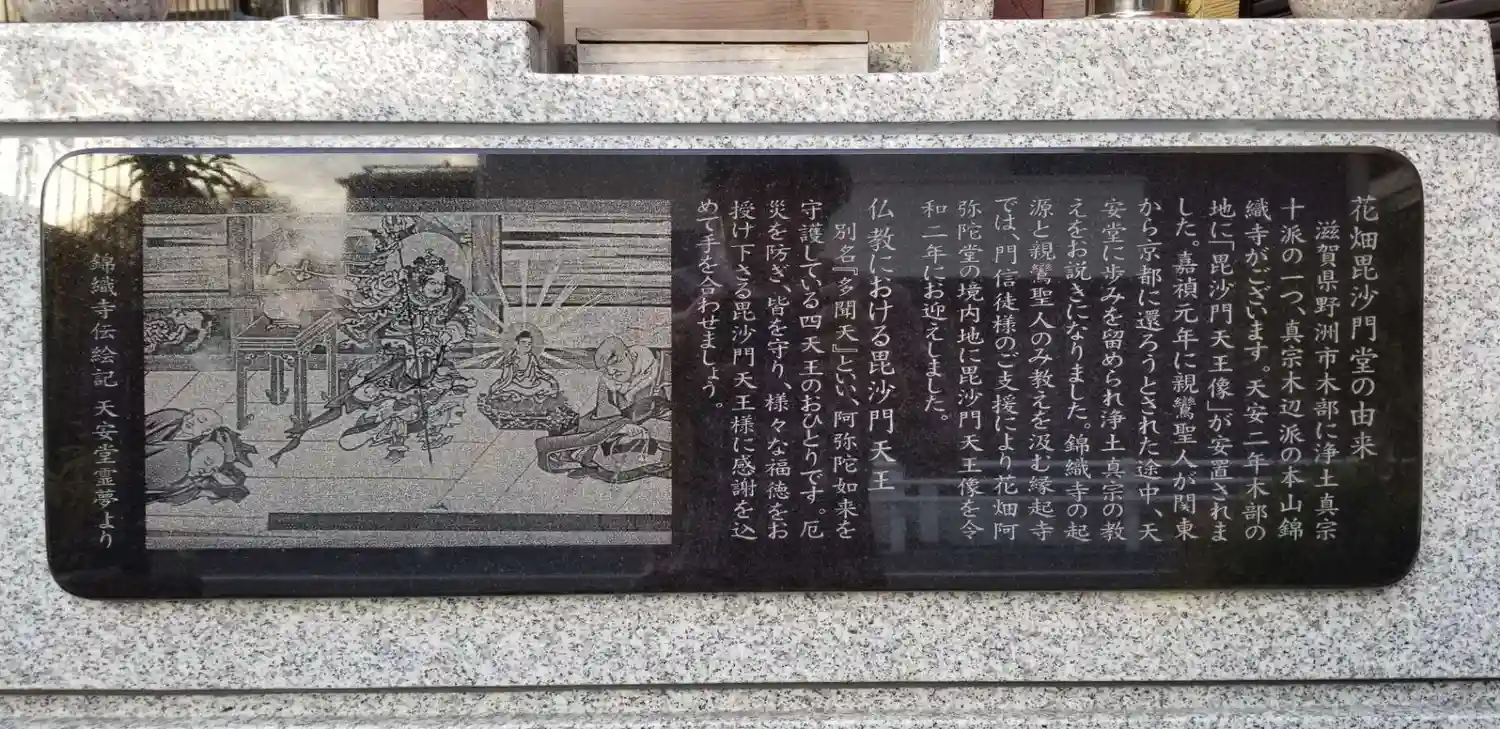 花畑毘沙門堂の由来
滋賀県野洲市木部に浄土真宗
十派の一つ、真宗木辺派の本山錦
織寺がございます。天安二年木部の
地に「毘沙門天王像」が安置されま
した。嘉禎元年に親鸞聖人が関東
から京都に還ろうとされた途中、天
安堂に歩みを留められ浄土真宗の教
えをお説きになりました。錦織寺の起
源と親鸞聖人のみ教えを汲む縁起寺
では、門信徒様のご支援により花畑阿
弥陀堂の境内地に毘沙門天王像を令
和二年にお迎えしました。
仏教における毘沙門天王
別名『多聞天』といい、阿弥陀如来を
守護している四天王のおひとりです。厄
災を防ぎ、皆を守り、様々な福徳をお
授け下さる毘沙門天王様に感謝を込
めて手を合わせましょう。
錦織寺伝絵記 天安堂霊夢より